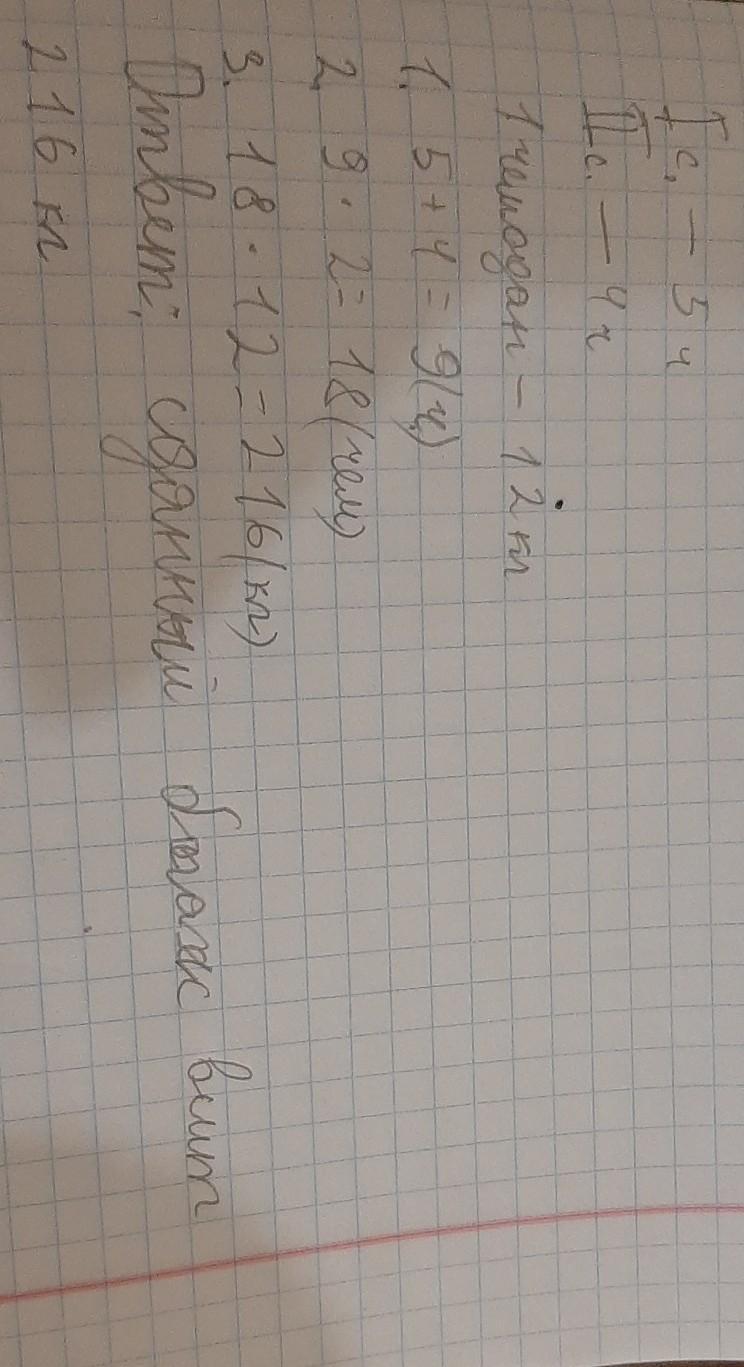 I с. – 5 ч
II с. – 4 ч
1 чемодан – 12 кг
1. 5 + 4 = 9 (ч)
2. 9 · 2 = 18 (чем)
3. 18 · 12 = 216 (кг)
Ответ: сданный багаж весит
216 кг